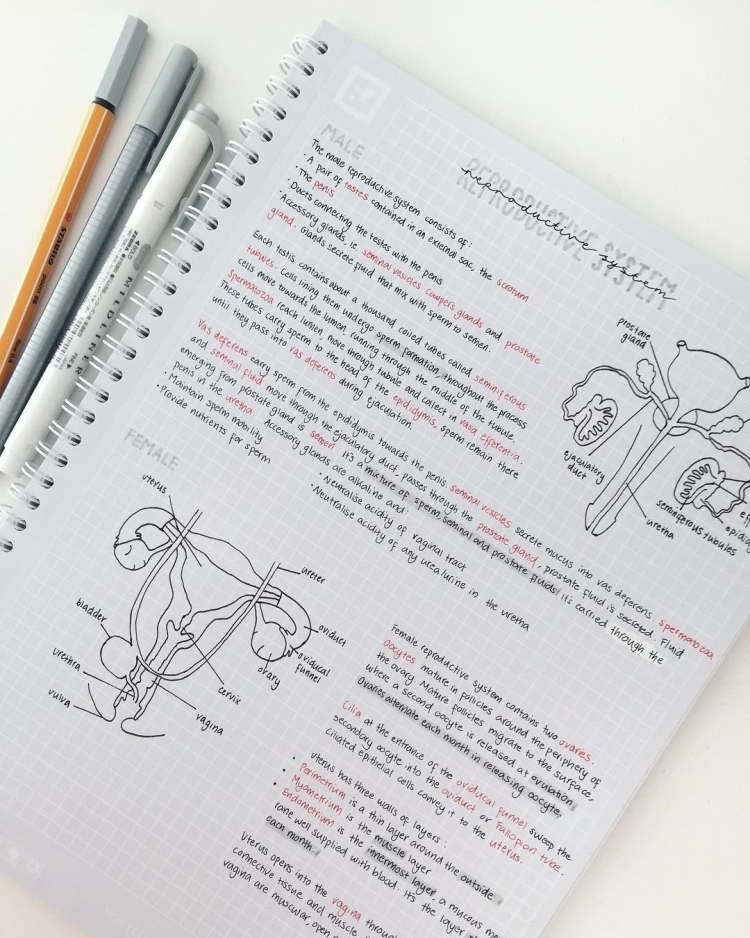 STABILO
point 88
MILDLINER
REPRODUCTIVE SYSTEM
reproductive system
MALE
The male reproductive system consists of:
· A pair of testes contained in an external sac, the scrotum
· The penis
· Ducts connecting the testes with the penis
· Accessory glands, ie. seminal vesicles cowper's glands and prostate
gland. Glands secrete fluid that mix with sperm to semen.
Each testis contains about a thousand coiled tubes called seminiferous
tubules. Cells lining them undergo sperm formation, throughout the process
cells move towards the lumen, running through the middle of the tubule.
Spermatozoa reach lumen, move through tubule and collect in vasa efferentia.
These tubes carry sperm to the head of the epididymis, sperm remain there
until they pass into vas deferens during ejaculation.
Vas deferens carry sperm from the epididymis towards the penis. seminal vesicles secrete mucus into vas deferens. Spermatozoa
and seminal fluid move through the ejaculatory duct, passes through the prostate gland, prostate fluid is secreted. Fluid
emerging from prostate gland is semen it's a mixture of sperm, seminal and prostate fluids. It's carried through the
penis in the urethra. Accessory glands are alkaline and:
· Maintain sperm mobility
· Provide nutrients for sperm
· Neutralise acidity of vaginal tract
· Neutralise acidity of any urea/urine in the urethra
prostate
gland
ejaculatory
duct
uretra
seminiferous tubules
FEMALE
uterus
ureter
oviduct
oviducal
funnel
ovary
cervix
vagina
bladder
urethra
vulva
Female reproductive system contains two ovaries.
Oocytes mature in follicles around the periphery of
the ovary. Mature follicles migrate to the surface,
where a second oocyte is released at ovulation.
Ovaries alternate each month in releasing oocyte.
Cilia at the entrance of the oviducal funnel sweep the
secondary oocyte into the oviduct or fallopian tube.
Ciliated epithelial cells convey it to the uterus.
uterus has three walls of layers:
· Perimetrium is a thin layer around the outside
· Myometrium is the muscle layer
· Endometrium is the innermost layer, a mucous
rane well supplied with blood. It's the layer
each month.
Uterus opens into the vagina through
connective tissue and muscle.
vagina are muscular, open